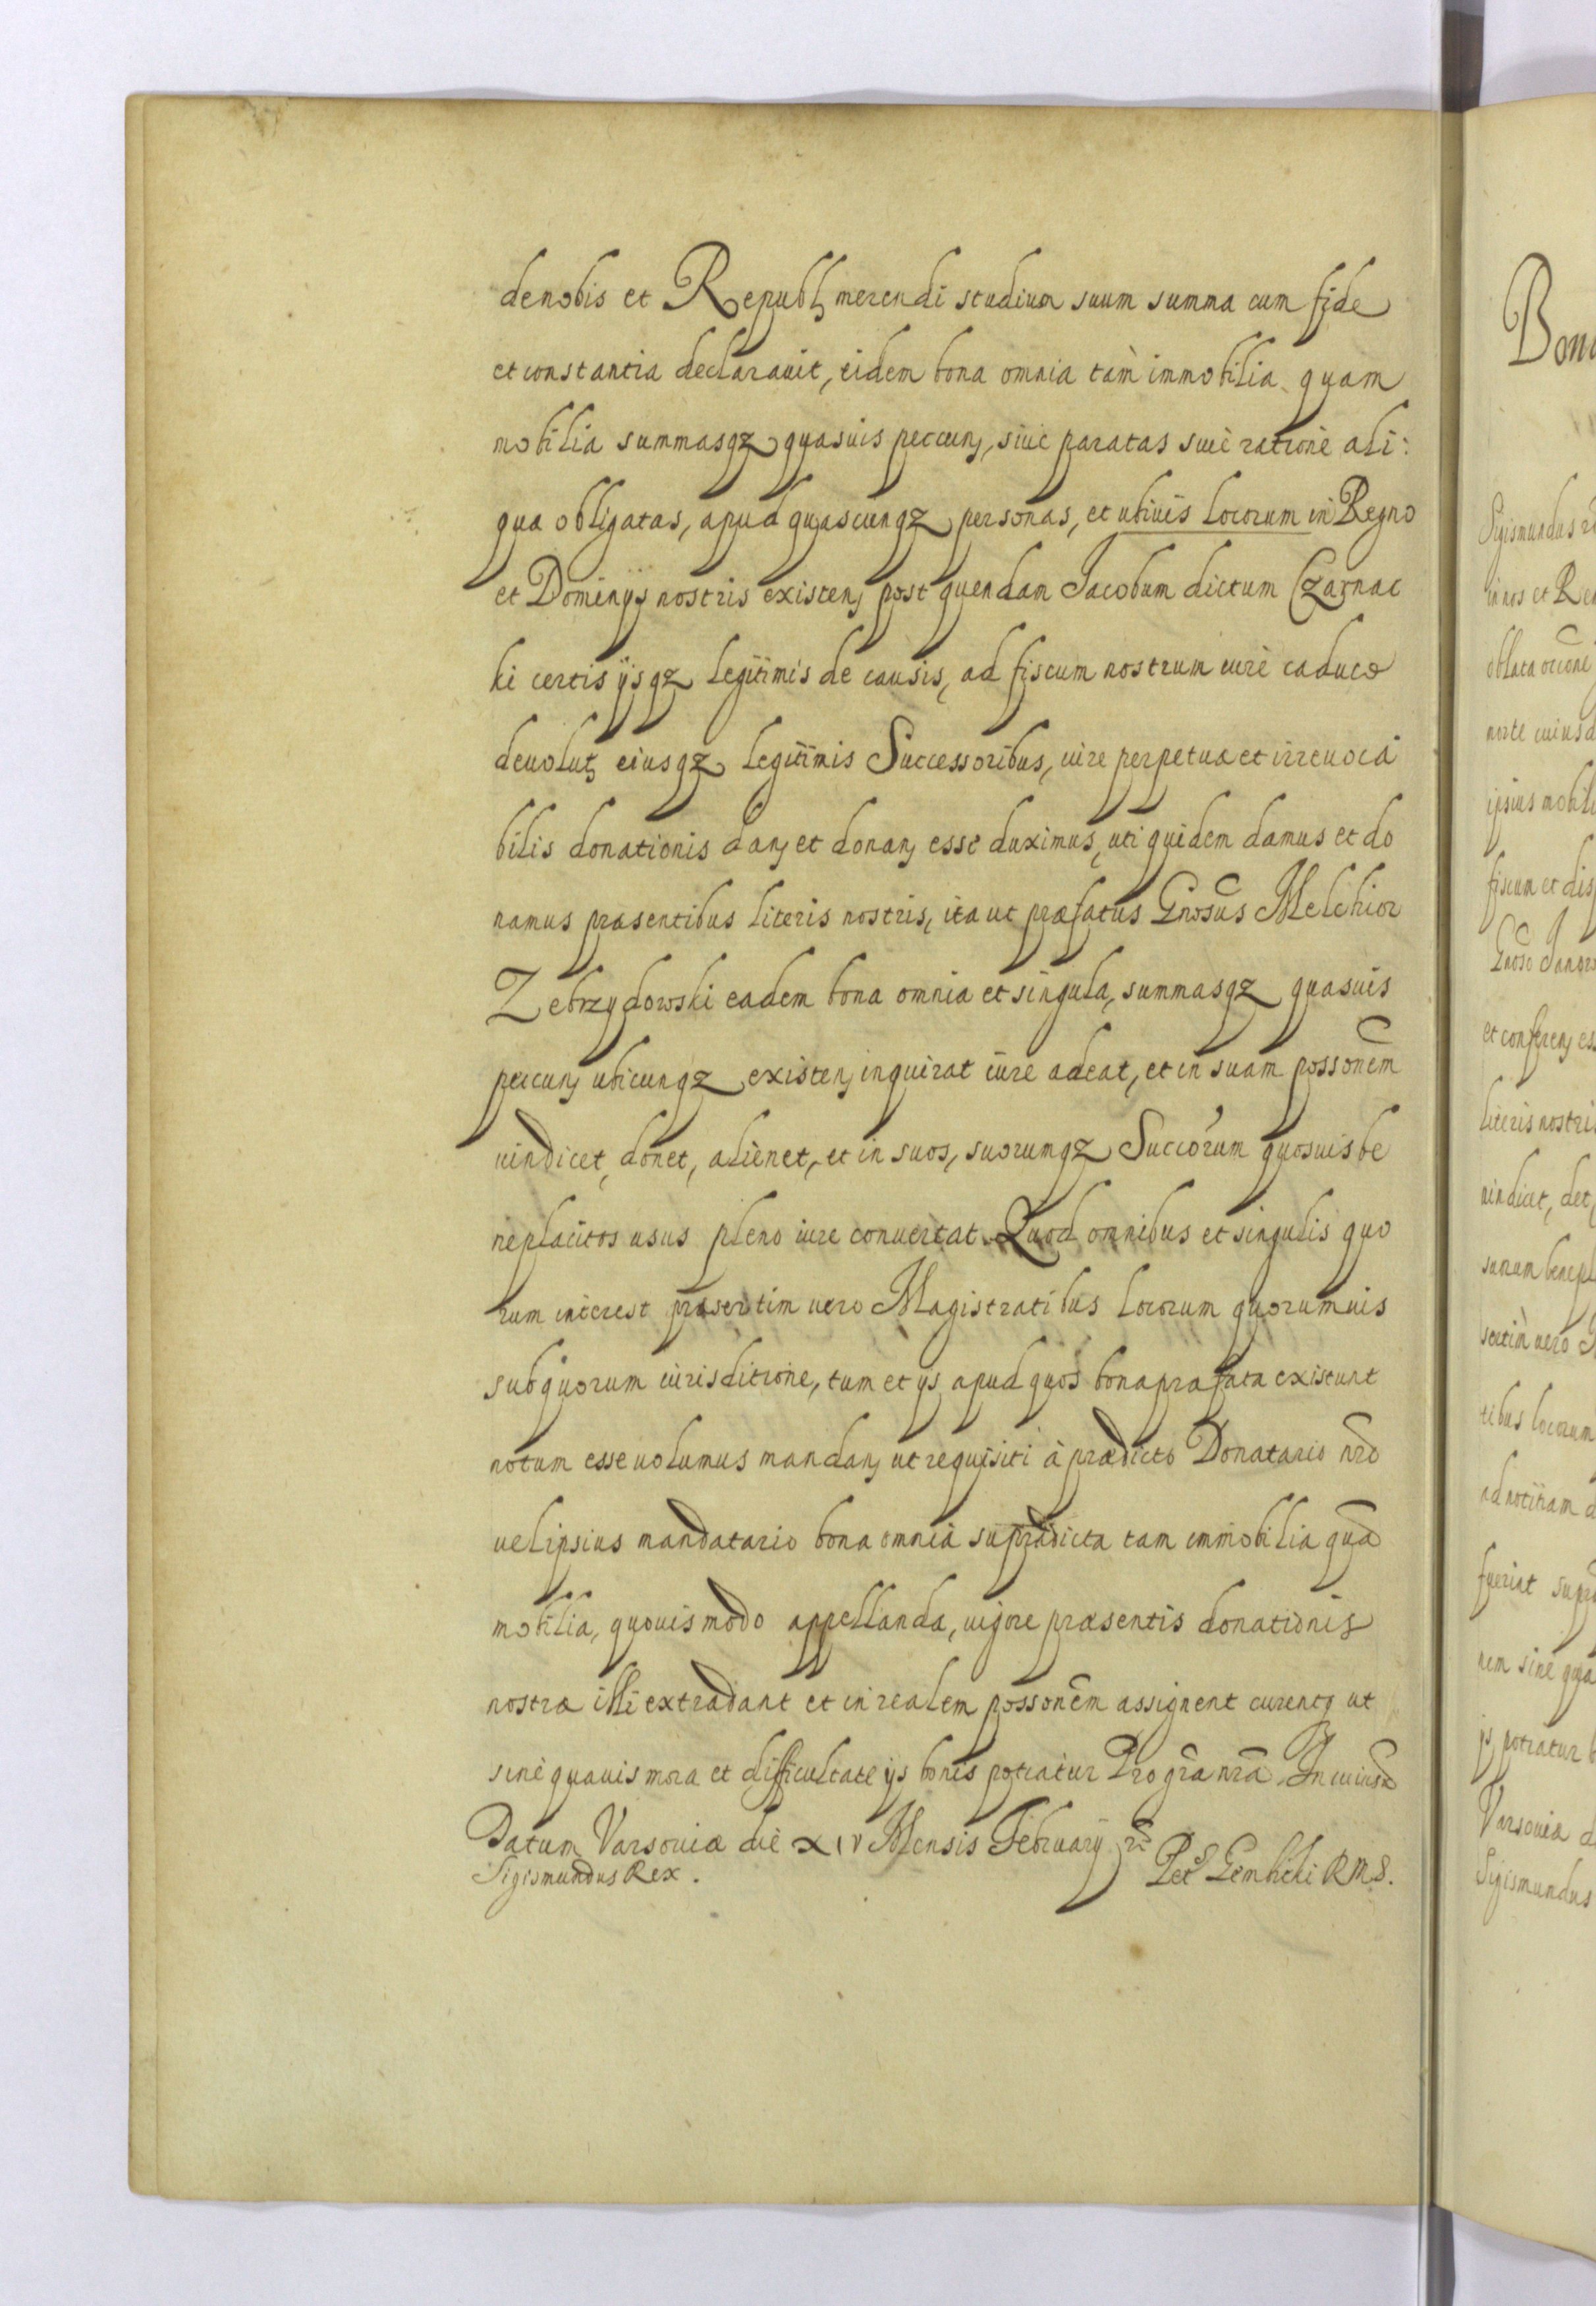 de nobis et Republ merendi studium suum summa cum fide
et constantia declarauit, eidem bona omnia tam immobilia quam
mobilia summasqz quasuis peccun, siue paratas siue ratione ali:
qua obligatas, apud quascunqz personas, et ubiuis locorum in Regno
et Dominijs nostris existen post quendam Jacobum dictum Czarnac
ki certis ijsqz legitimis de causis, ad fiscum nostrum iure caduco
deuolut eiusqz legitimis Successoribus, iure perpetuæ et irreuoca
bilis donationis dan et donan esse duximus, uti quidem damus et do
namus præsentibus literis nostris, ita ut præfatus Gnosus Melchior
Zebrzydowski eadem bona omnia et singula, summasqz quasuis
peccun ubicunqz existen inquirat iure adeat, et in suam possonem
uindicet, donet, alienet, et in suos, suorumqz Succorum quosuis be
neplacitos usus pleno iure conuertat. Quod omnibus et singulis quo
rum interest præsertim uero Magistratibus locorum quorumuis
sub quorum iurisditione, tum et ijs apud quos bona præfata existunt
notum esse uolumus mandan ut requisiti à prædicto Donatario nro
uel ipsius mandatario bona omnia supradicta tam immobilia qua
mobilia, quouis modo appellanda, uigore præsentis donationis
nostræ illi extradant et in realem possonem assignent curentqz ut
sine quauis mora et difficultate ijs bonis potiatur Pro gra nra In cuius
Datum Varsouiæ die XIV Mensis February
Sigismundus Rex. Pet Gembicki R M S.
Bon
Sigismundus
in nos et Re
oblata
morte cuiusd
ipsius mobili
fiscum et dis
Gnoso Janor
et conferen es
literis nostris
uindicet, det,
suum benepl
sertim uero
tibus locorum
ad notitiam d
fuerint supra
nem sine qua
ijs potiatur b
Varsouiæ d
Sigismundus